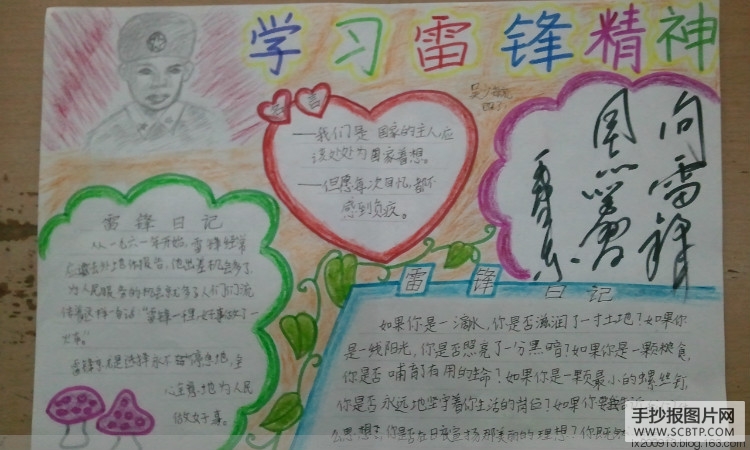 学习雷锋精神
——我们是国家的主人应
该处处为国家着想。
——但愿每次回忆,都不
感到负疚。
向雷锋
同志学习
毛泽东
雷锋日记
从一九六一年开始,雷锋经常
应邀去外地作报告,他出差机会多了,
为人民服务的机会就多了,人们
传着这样一句话:"雷锋一
火车。"
为人民
做好事。
雷锋日记
如果你是一滴水,你是否滋润了一寸土地?如果你
是一线阳光,你是否照亮了一分黑暗?如果你是一颗粮食,
你是否哺育了有用的生命?如果你是一颗最小的螺丝钉,
你是否永远地坚守着你生活的岗位?如果你要告诉
么思想,你是否在日夜宣扬那美丽的理想?你既
手抄报图片网
WWW.SCBTP.COM
lx200913.blog.163.com